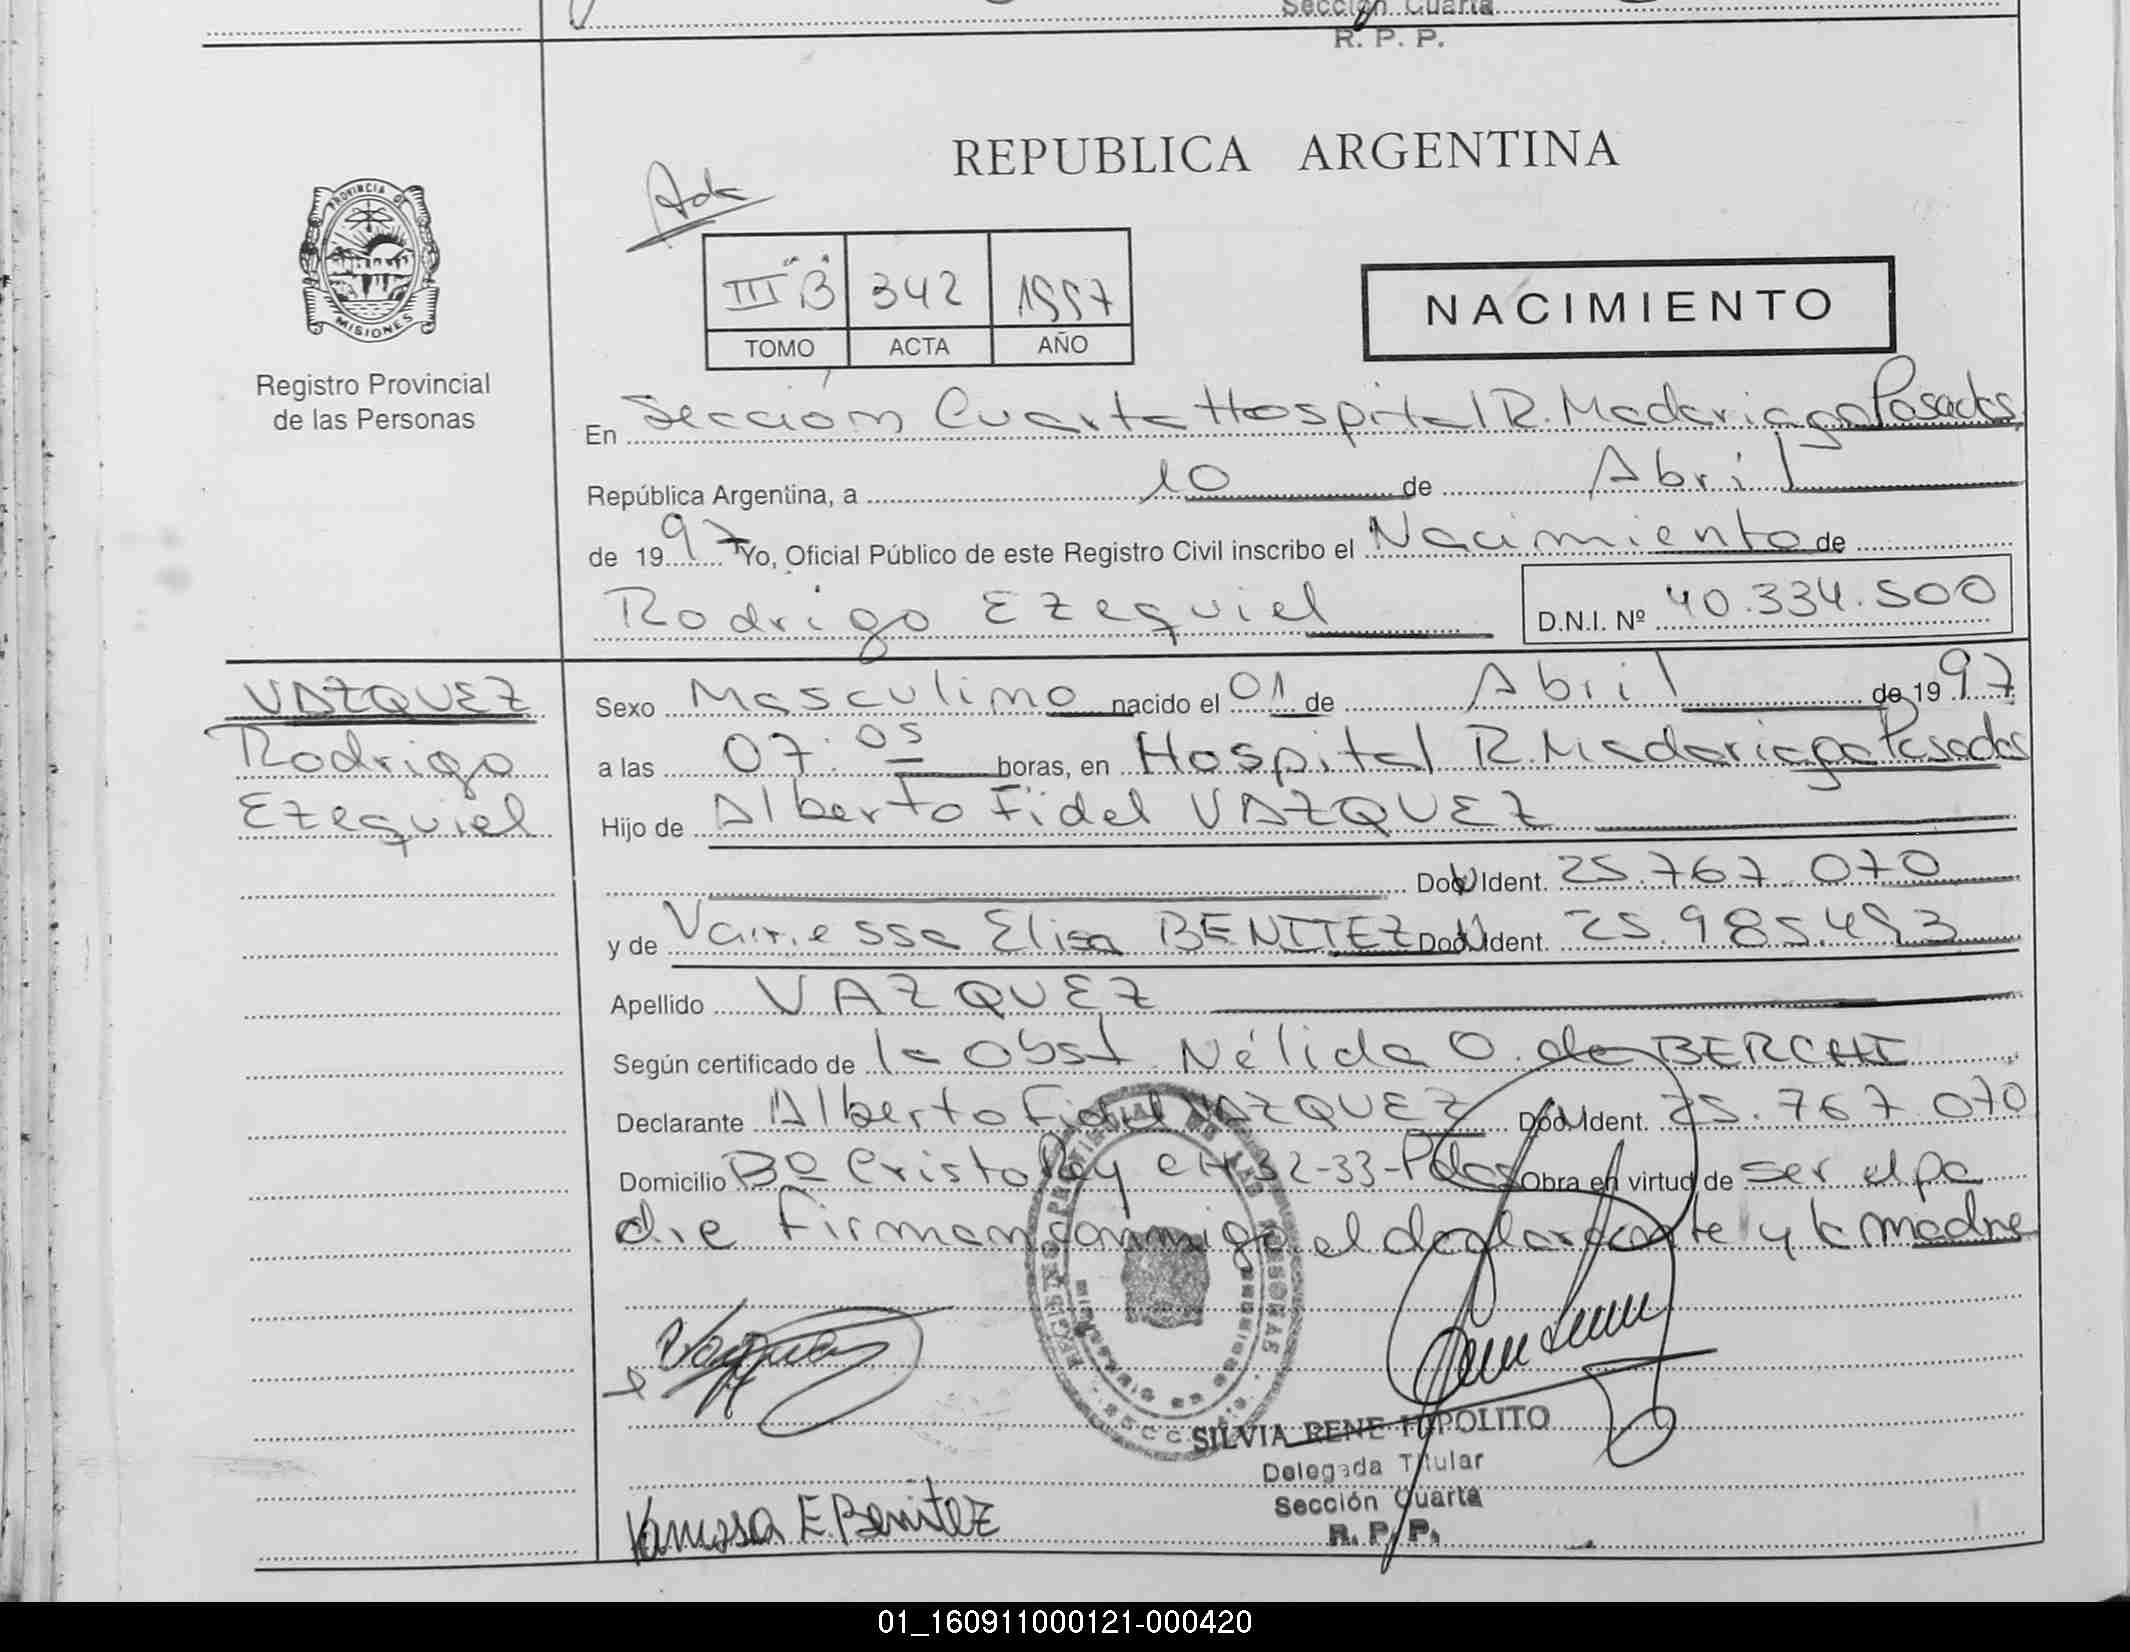 Sección Cuarta
R. P. P.
REPUBLICA ARGENTINA
PROVINCIA DE
MISIONES
Registro Provincial
de las Personas
III "B" 342 1997
TOMO ACTA AÑO
NACIMIENTO
En Sección Cuarta Hospital R. Madariaga Posadas
República Argentina, a 10 de Abril
de 1997 Yo, Oficial Público de este Registro Civil inscribo el Nacimiento de
Rodrigo Ezequiel D.N.I. Nº 40.334.500
VAZQUEZ
Rodrigo
Ezequiel
Sexo Masculino nacido el 01 de Abril de 1997
a las 07:05 horas, en Hospital R. Madariaga Posadas
Hijo de Alberto Fidel VAZQUEZ
Doc. Ident. 25.767.070
y de Vanessa Elisa BENITEZ Doc. Ident. 25.985.493
Apellido VAZQUEZ
Según certificado de la Obst. Nélida O. de BERCHI
Declarante Alberto Fidel VAZQUEZ Doc. Ident. 25.767.070
Domicilio Bº Cristo Rey CH 32-33-Pdas Obra en virtud de ser el pa
dre Firman conmigo el declarante y la madre
SILVIA RENE HIPOLITO
Delegada Titular
Sección Cuarta
R. P. P.
Vanessa E. Benitez
01_160911000121-000420